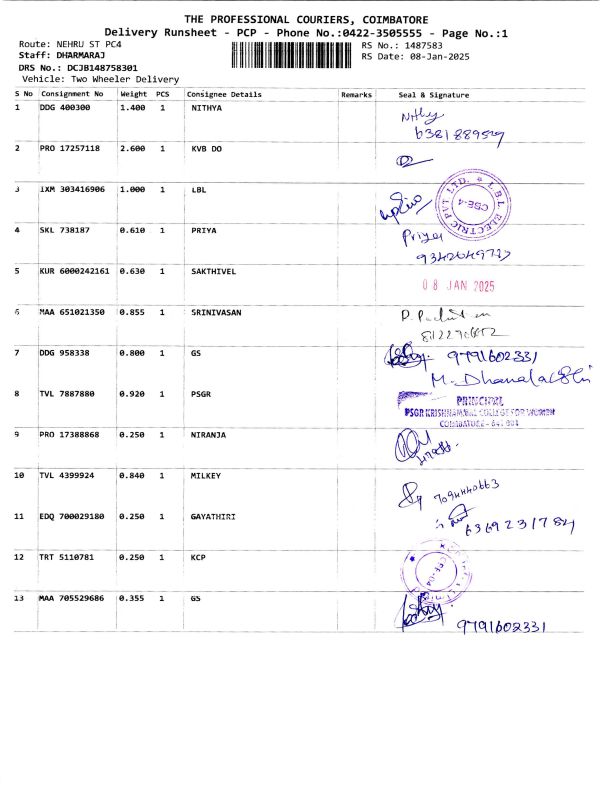 THE PROFESSIONAL COURIERS, COIMBATORE
Delivery Runsheet - PCP - Phone No.:0422-3505555 - Page No.:1
Route: NEHRU ST PC4
RS No.: 1487583
Staff: DHARMARAJ
RS Date: 08-Jan-2025
DRS No.: DCJB148758301
Vehicle: Two Wheeler Delivery
S No Consignment No Weight PCS Consignee Details Remarks Seal & Signature
1 DDG 400300 1.400 1 NITHYA
2 PRO 17257118 2.600 1 KVB DO
3 IXM 303416906 1.000 1 LBL
LBL ELECTRIC PVT LTD. * CBE-4
4 SKL 738187 0.610 1 PRIYA Priya
5 KUR 6000242161 0.630 1 SAKTHIVEL
08 JAN 2025
6 MAA 651021350 0.855 1 SRINIVASAN
7 DDG 958338 0.800 1 GS 9791602331
8 TVL 7887880 0.920 1 PSGR
PRINCIPAL
PSGR KRISHNAMMAL COLLEGE FOR WOMEN
COIMBATORE - 641 004
9 PRO 17388868 0.250 1 NIRANJA
10 TVL 4399924 0.840 1 MILKEY
7094440663
11 EDQ 700029180 0.250 1 GAYATHIRI
6369231784
12 TRT 5110781 0.250 1 KCP
13 MAA 705529686 0.355 1 GS
9791602331